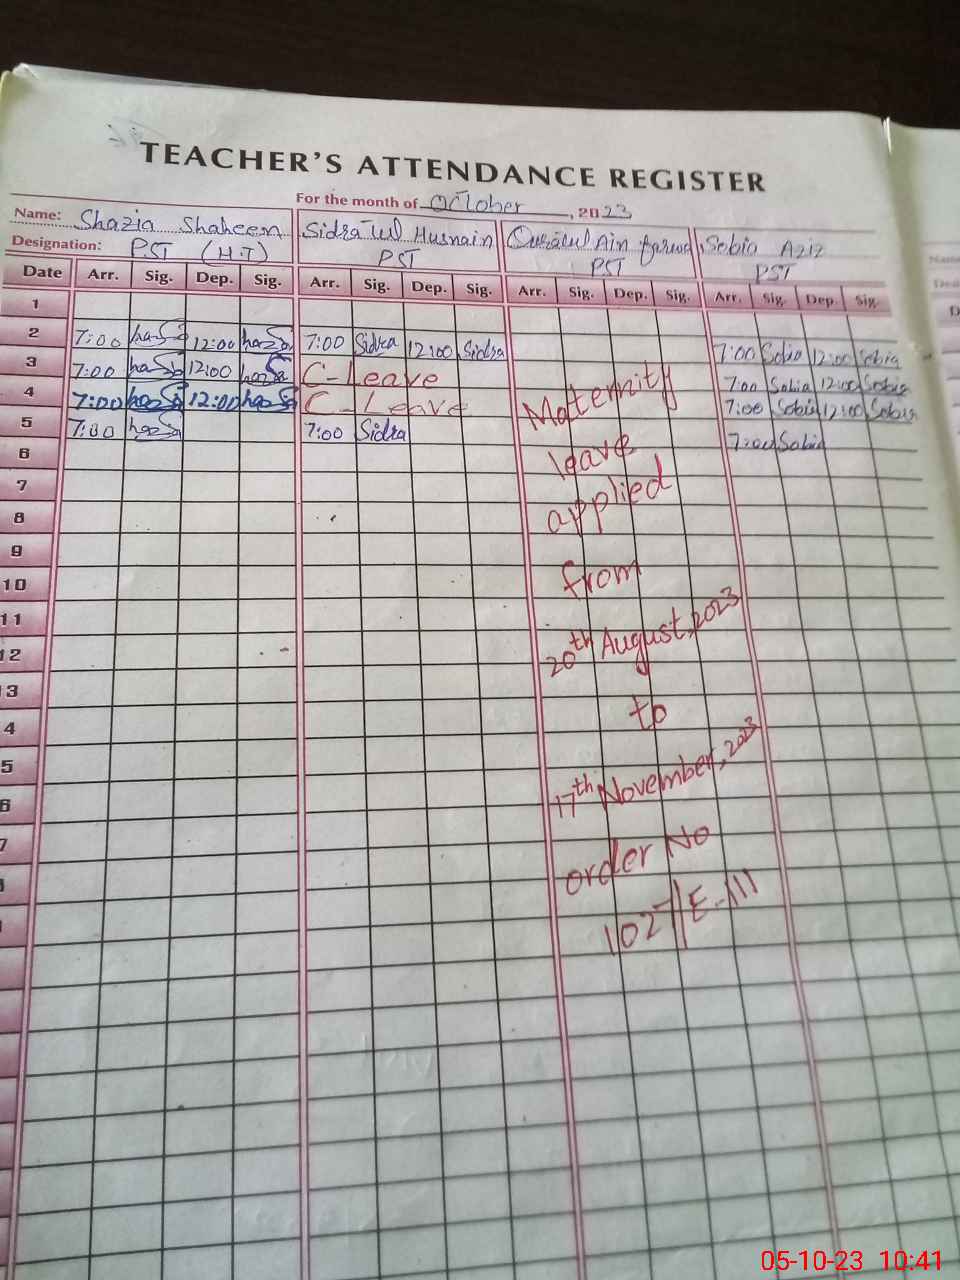 TEACHER'S ATTENDANCE REGISTER
For the month of October, 2023
Name: Shazia Shaheen Sidra Tul Husnain Quratul Ain Sobia Aziz
Designation: PST (H.T) PST PST PST
Date Arr. Sig. Dep. Sig. Arr. Sig. Dep. Sig. Arr. Sig. Dep. Sig. Arr. Sig. Dep. Sig.
1
2 7:00 12:00 7:00 Sidra 12:00 Sidra 7:00 Sobia 12:00 Sobia
3 7:00 12:00 C-Leave 7:00 Sobia 12:00 Sobia
4 7:00 12:00 C-Leave 7:00 Sobia 12:00 Sobia
5 7:00 7:00 Sidra 7:00 Sobia
6
7
8
9
10
11
12
3
4
5
6
7
Maternity
leave
applied
from
20th August, 2023
to
17th November, 2023
order No
1027/E-III
05-10-23 10:41